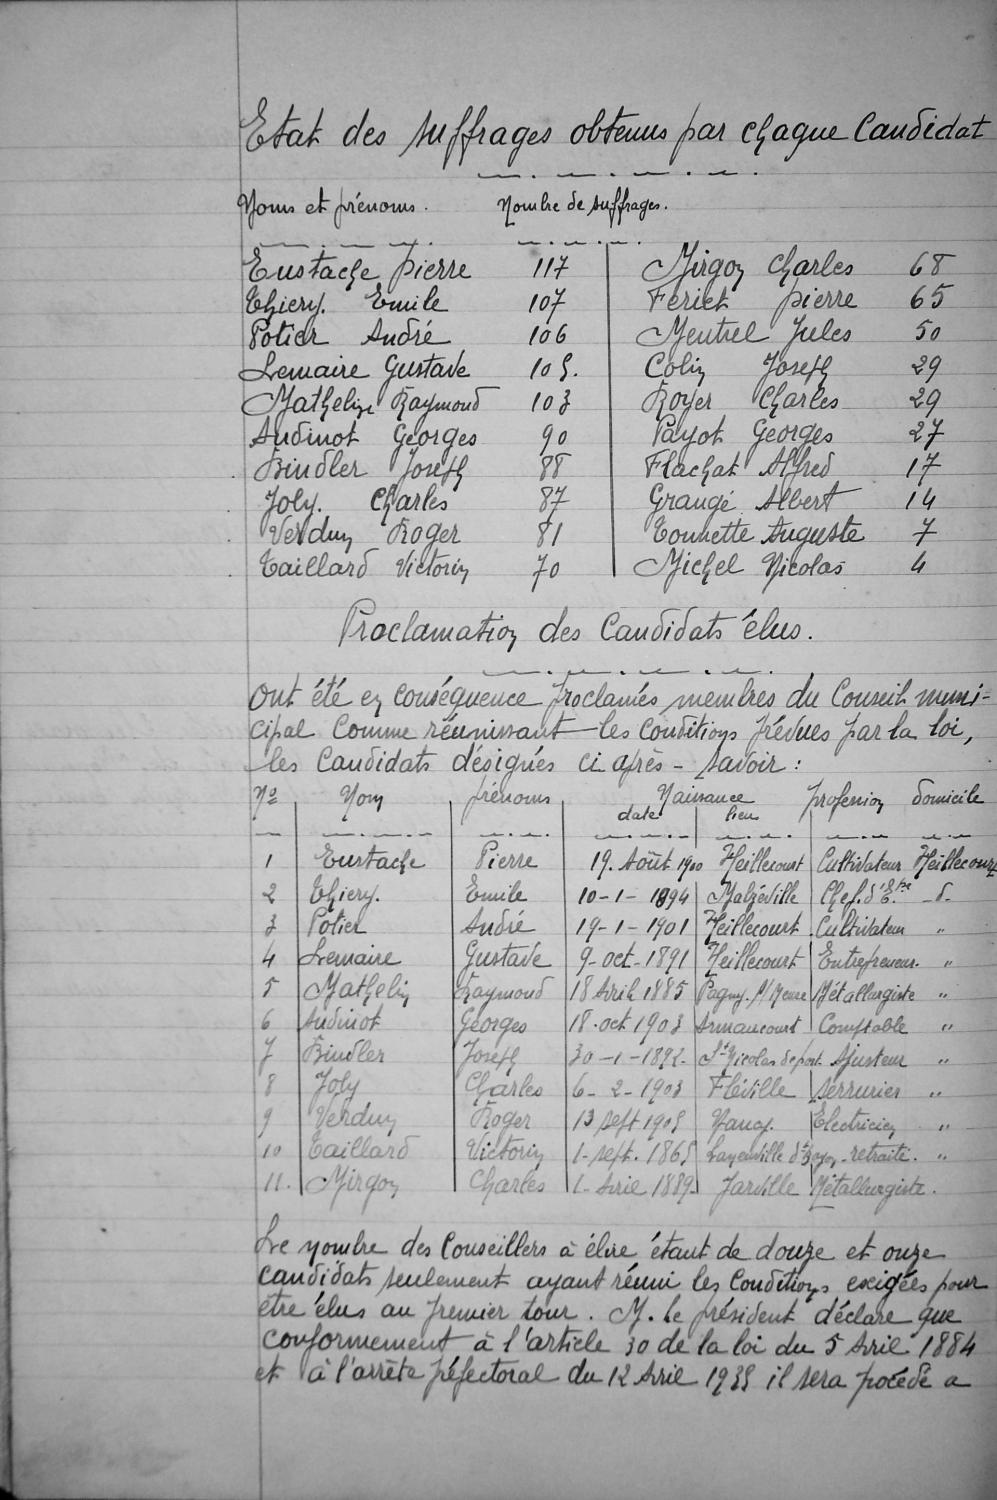 Etat des suffrages obtenus par chaque Candidat
Noms et prénoms. Nombre de suffrages.
Eustache Pierre 117
Thiery. Emile 107
Potier André 106
Lemaire Gustave 105.
Mathelin Raymond 103
Audinot Georges 90
Bindler Joseph 88
Joly. Charles 87
Verdun Roger 81
Taillard Victorin 70
Mirgon Charles 68
Feriet Pierre 65
Mentrel Jules 50
Colin Joseph 29
Royer Charles 29
Payot Georges 27
Flachat Alfred 17
Grangé Albert 14
Tonnette Auguste 7
Michel Nicolas 4
Proclamation des Candidats élus.
Ont été en conséquence proclamés membres du Conseil muni-
cipal comme réunissant les conditions prévues par la loi,
les candidats désignés ci après - savoir :
No Nom prénoms Naissance profession domicile
date lieu
1 Eustache Pierre 19. Août 1900 Heillecourt Cultivateur Heillecourt
2 Thiery. Emile 10-1-1894 Malzéville Chef. d'Etse -d-
3 Potier André 19-1-1901 Heillecourt Cultivateur "
4 Lemaire Gustave 9-oct-1891 Heillecourt Entrepreneur. "
5 Mathelin Raymond 18 Avril 1885 Pagny. s/Meuse Métallurgiste "
6 Audinot Georges 18.oct 1903 Armaucourt Comptable "
7 Bindler Joseph 30-1-1892. St Nicolas de port Ajusteur "
8 Joly Charles 6-2-1903 Fléville serrurier "
9 Verdun Roger 13 sept 1905 Nancy. Electricien "
10 Taillard Victorin 1-sept. 1865 retraité. "
11. Mirgon Charles 1-Avril 1889 Jarville Métallurgiste.
Le nombre des Conseillers à élire étant de douze et onze
candidats seulement ayant réuni les conditions exigées pour
être élus au premier tour. M. le président déclare que
conformement à l'article 30 de la loi du 5 Avril 1884
et à l'arrête préfectoral du 12 Avril 1935 il sera procédé a